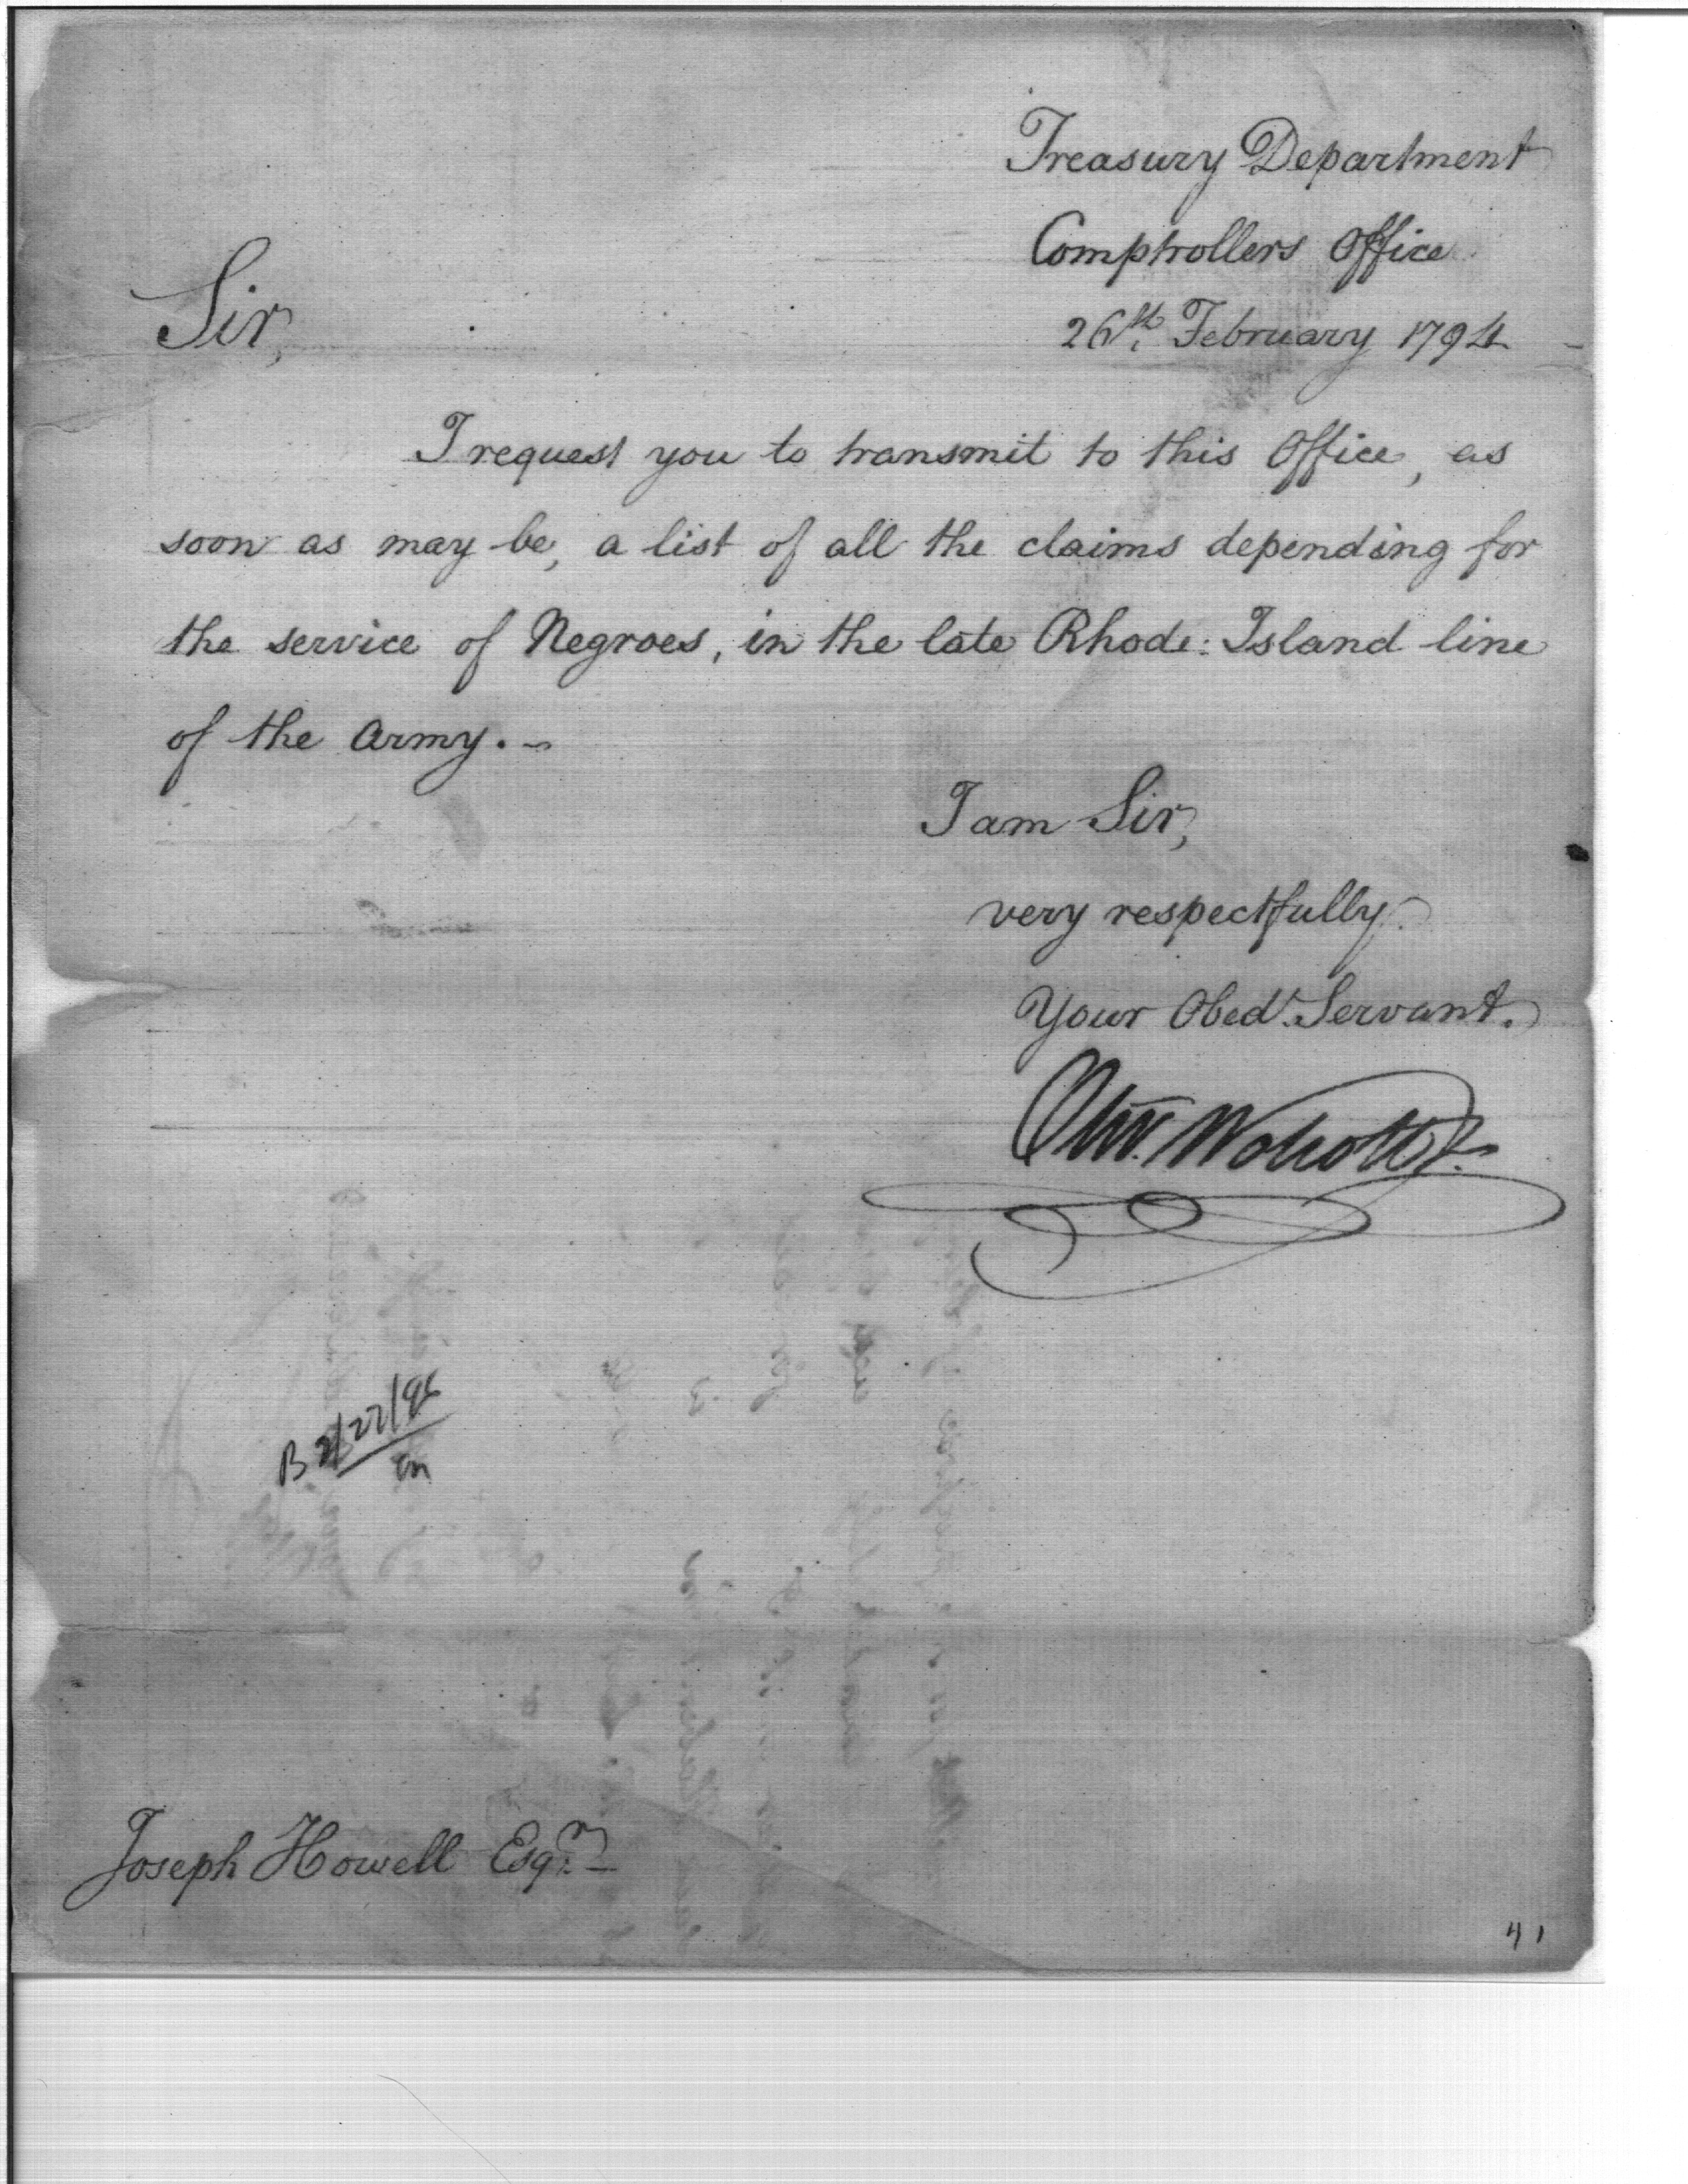 Treasury Department
Comptrollers Office
26th. February 1794
Sir,
I request you to transmit to this Office, as
soon as may be, a list of all the claims depending for
the service of Negroes, in the late Rhode: Island line
of the Army. -
I am Sir,
very respectfully.
Your Obedt. Servant.
Oliv. Wolcott Jr.
B 2/22/96
Joseph Howell Esqr.
41